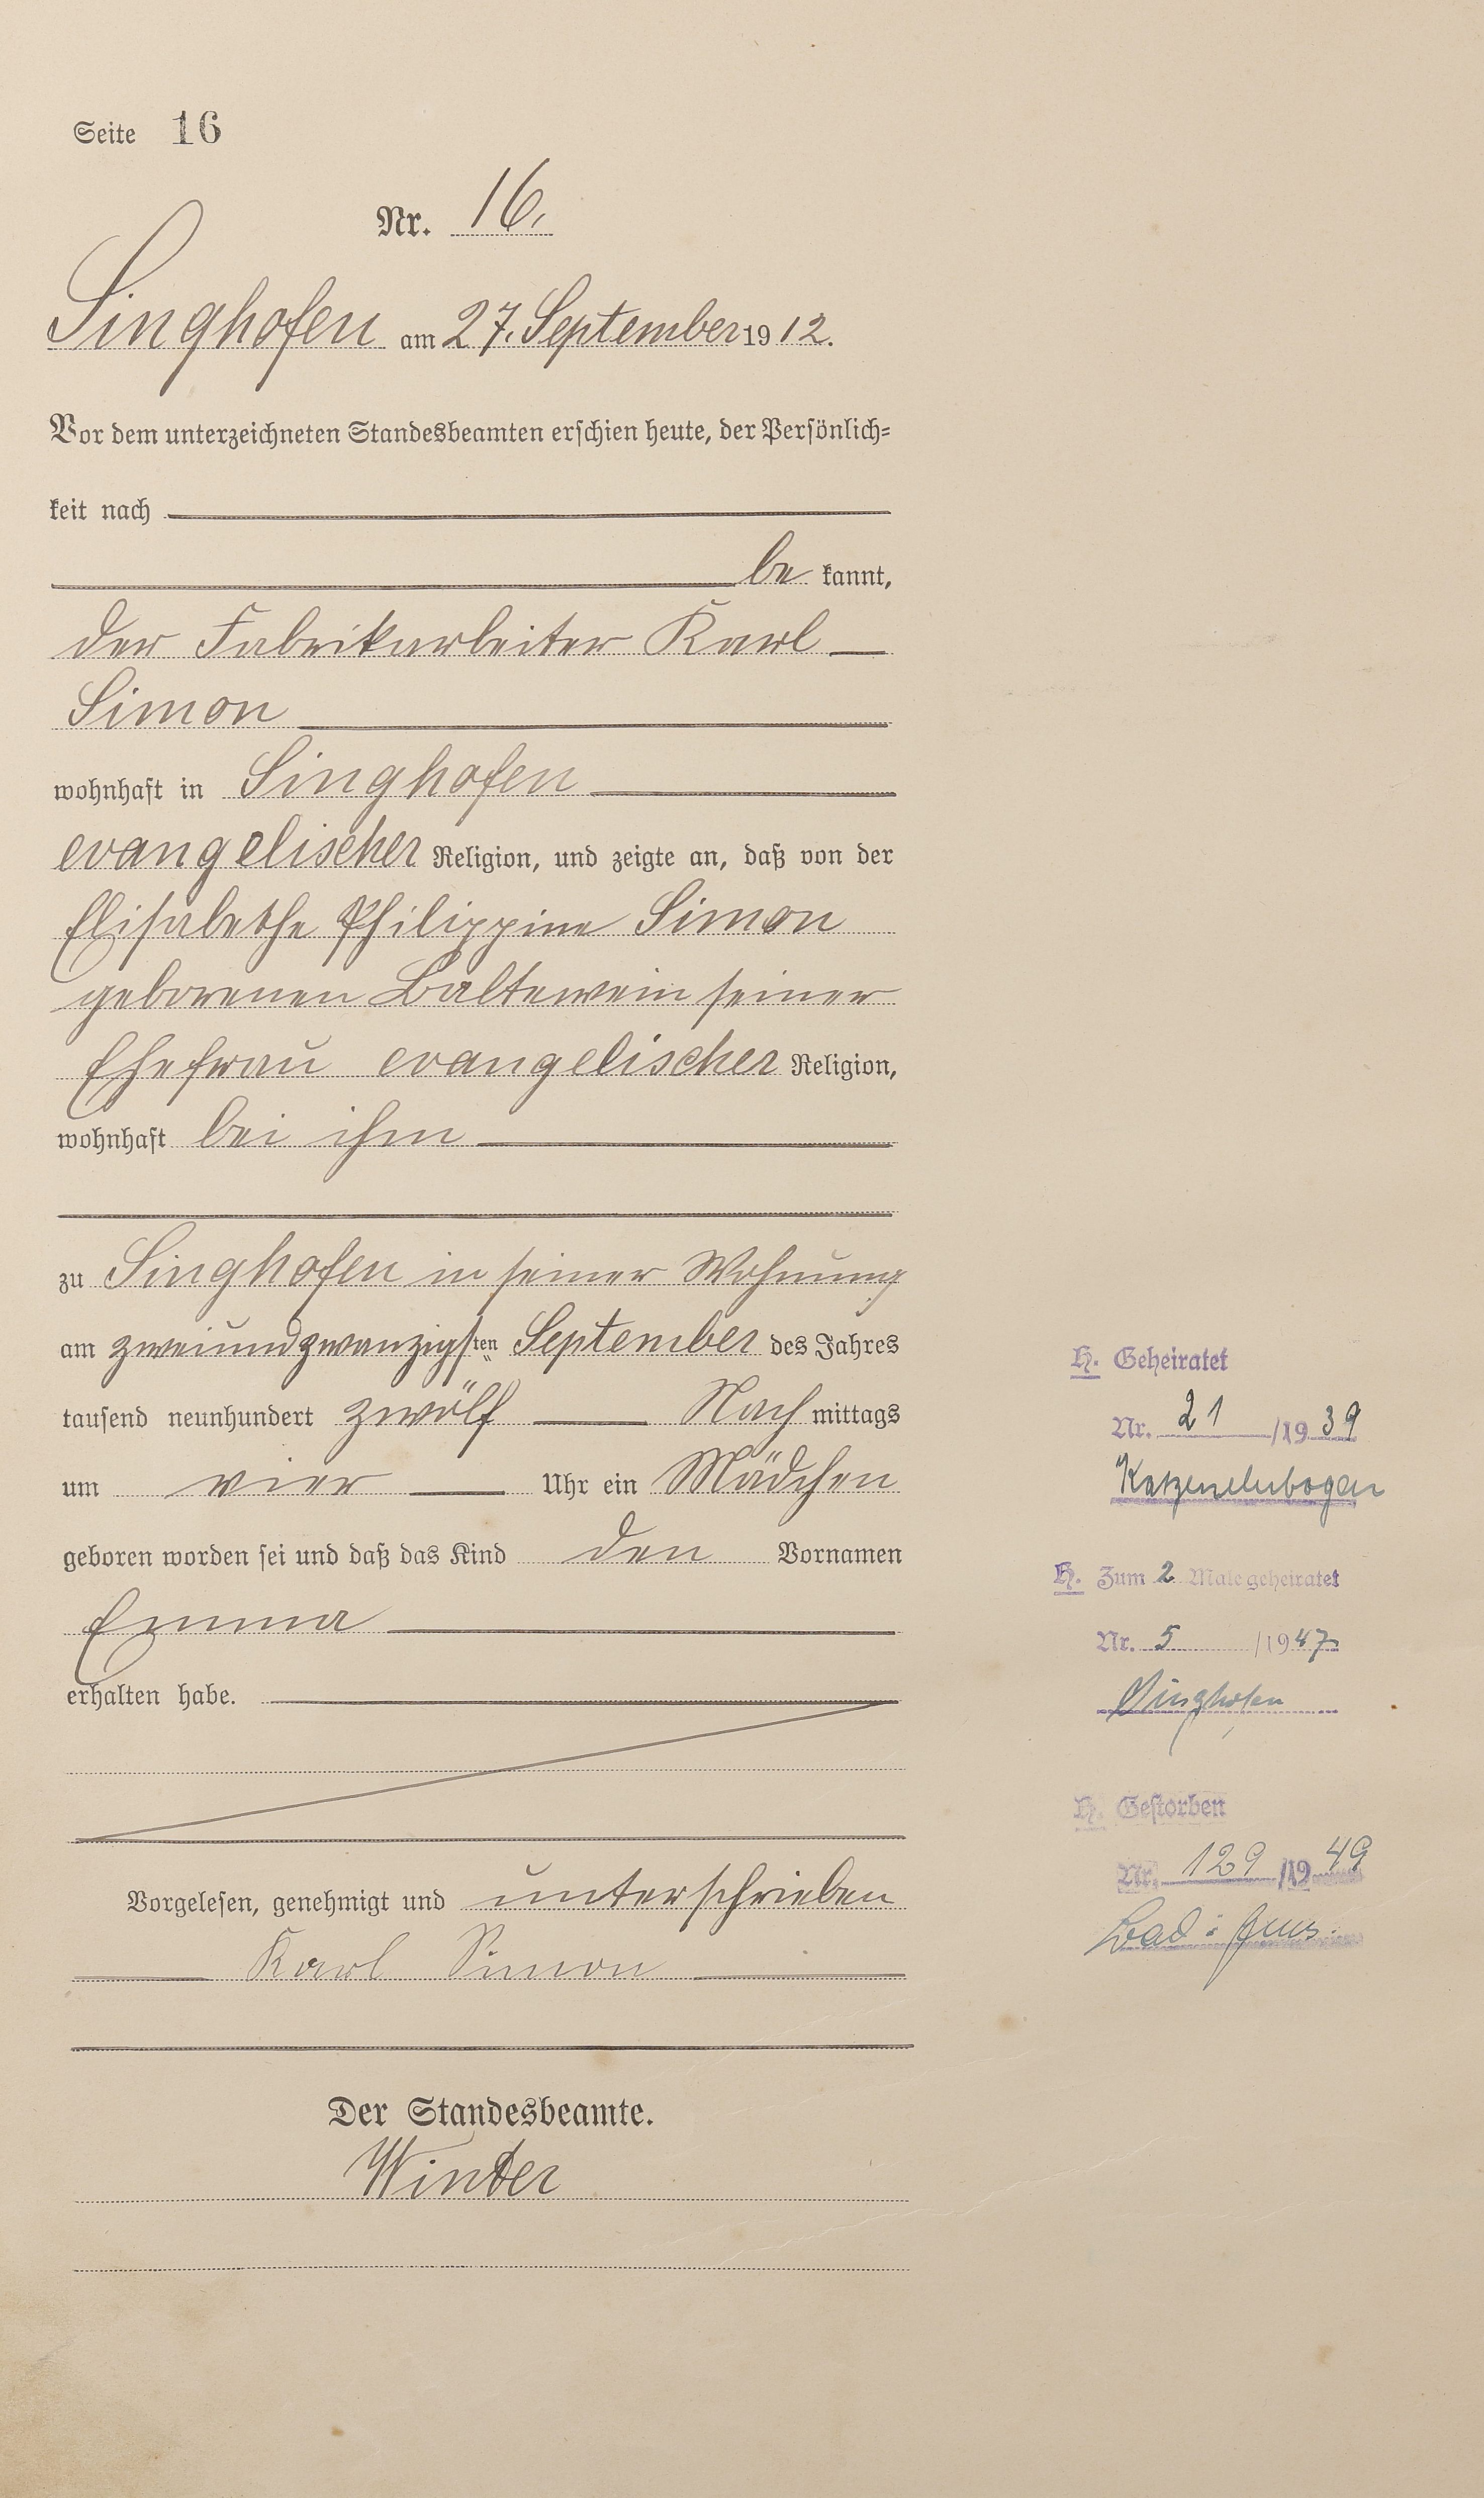 Seite 16
Nr. 16.
Singhofen am 27. September 1912.
Vor dem unterzeichneten Standesbeamten erschien heute, der Persönlich-
keit nach
be kannt,
der Fabrikarbeiter Karl
Simon
wohnhaft in Singhofen
evangelischer Religion, und zeigte an, daß von der
Elisabethe Philippine Simon
geborenen Baltewein seiner
Ehefrau evangelischer Religion,
wohnhaft bei ihm
zu Singhofen in seiner Wohnung
am zweiundzwanzigsten September des Jahres
tausend neunhundert zwölf Nachmittags
um vier Uhr ein Mädchen
geboren worden sei und daß das Kind den Vornamen
Emma
erhalten habe.
Vorgelesen, genehmigt und unterschrieben
Karl Simon
Der Standesbeamte.
Winter
H. Geheiratet
Nr. 21 /1939
Katzenelnbogen
H. Zum 2. Male geheiratet
Nr. 5 /1947
Singhofen
H. Gestorben
Nr. 129 /1949
Bad-Ems.